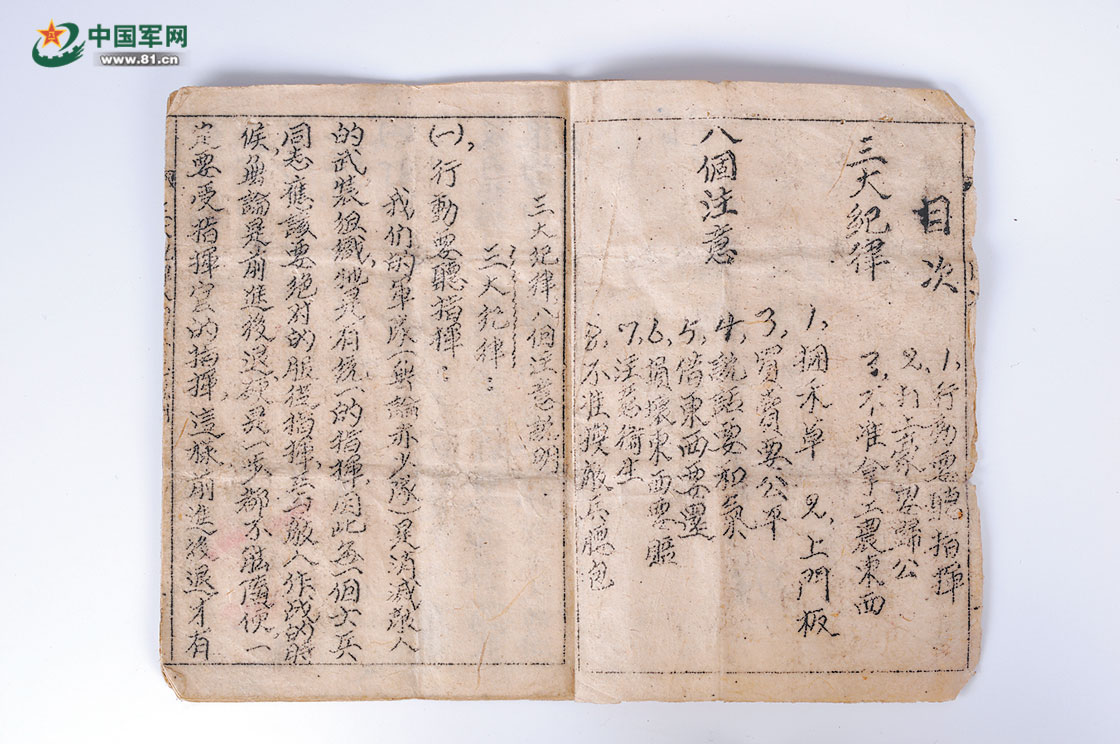 中国军网
www.81.cn
目次
三大紀律
1,行動要聽指揮
2,打土豪要歸公
3,不准拿工農東西
八個注意
1,捆禾草 2,上門板
3,買賣要公平
4,說話要和氣
5,借東西要還
6,損壞東西要賠
7,注意衛生
8,不准搜敵兵腰包
三大紀律八個注意說明
三大紀律:
(一),行動要聽指揮:
我们的軍隊(無論赤少隊)是消滅敵人
的武裝組織,就是有統一的指揮,因此每一個士兵
同志應該要絕对的服從指揮,在与敵人作战的時
候,無論是前進後退,硬是一步都不能隨便,一
定要受指揮官的指揮,這樣前進後退才有